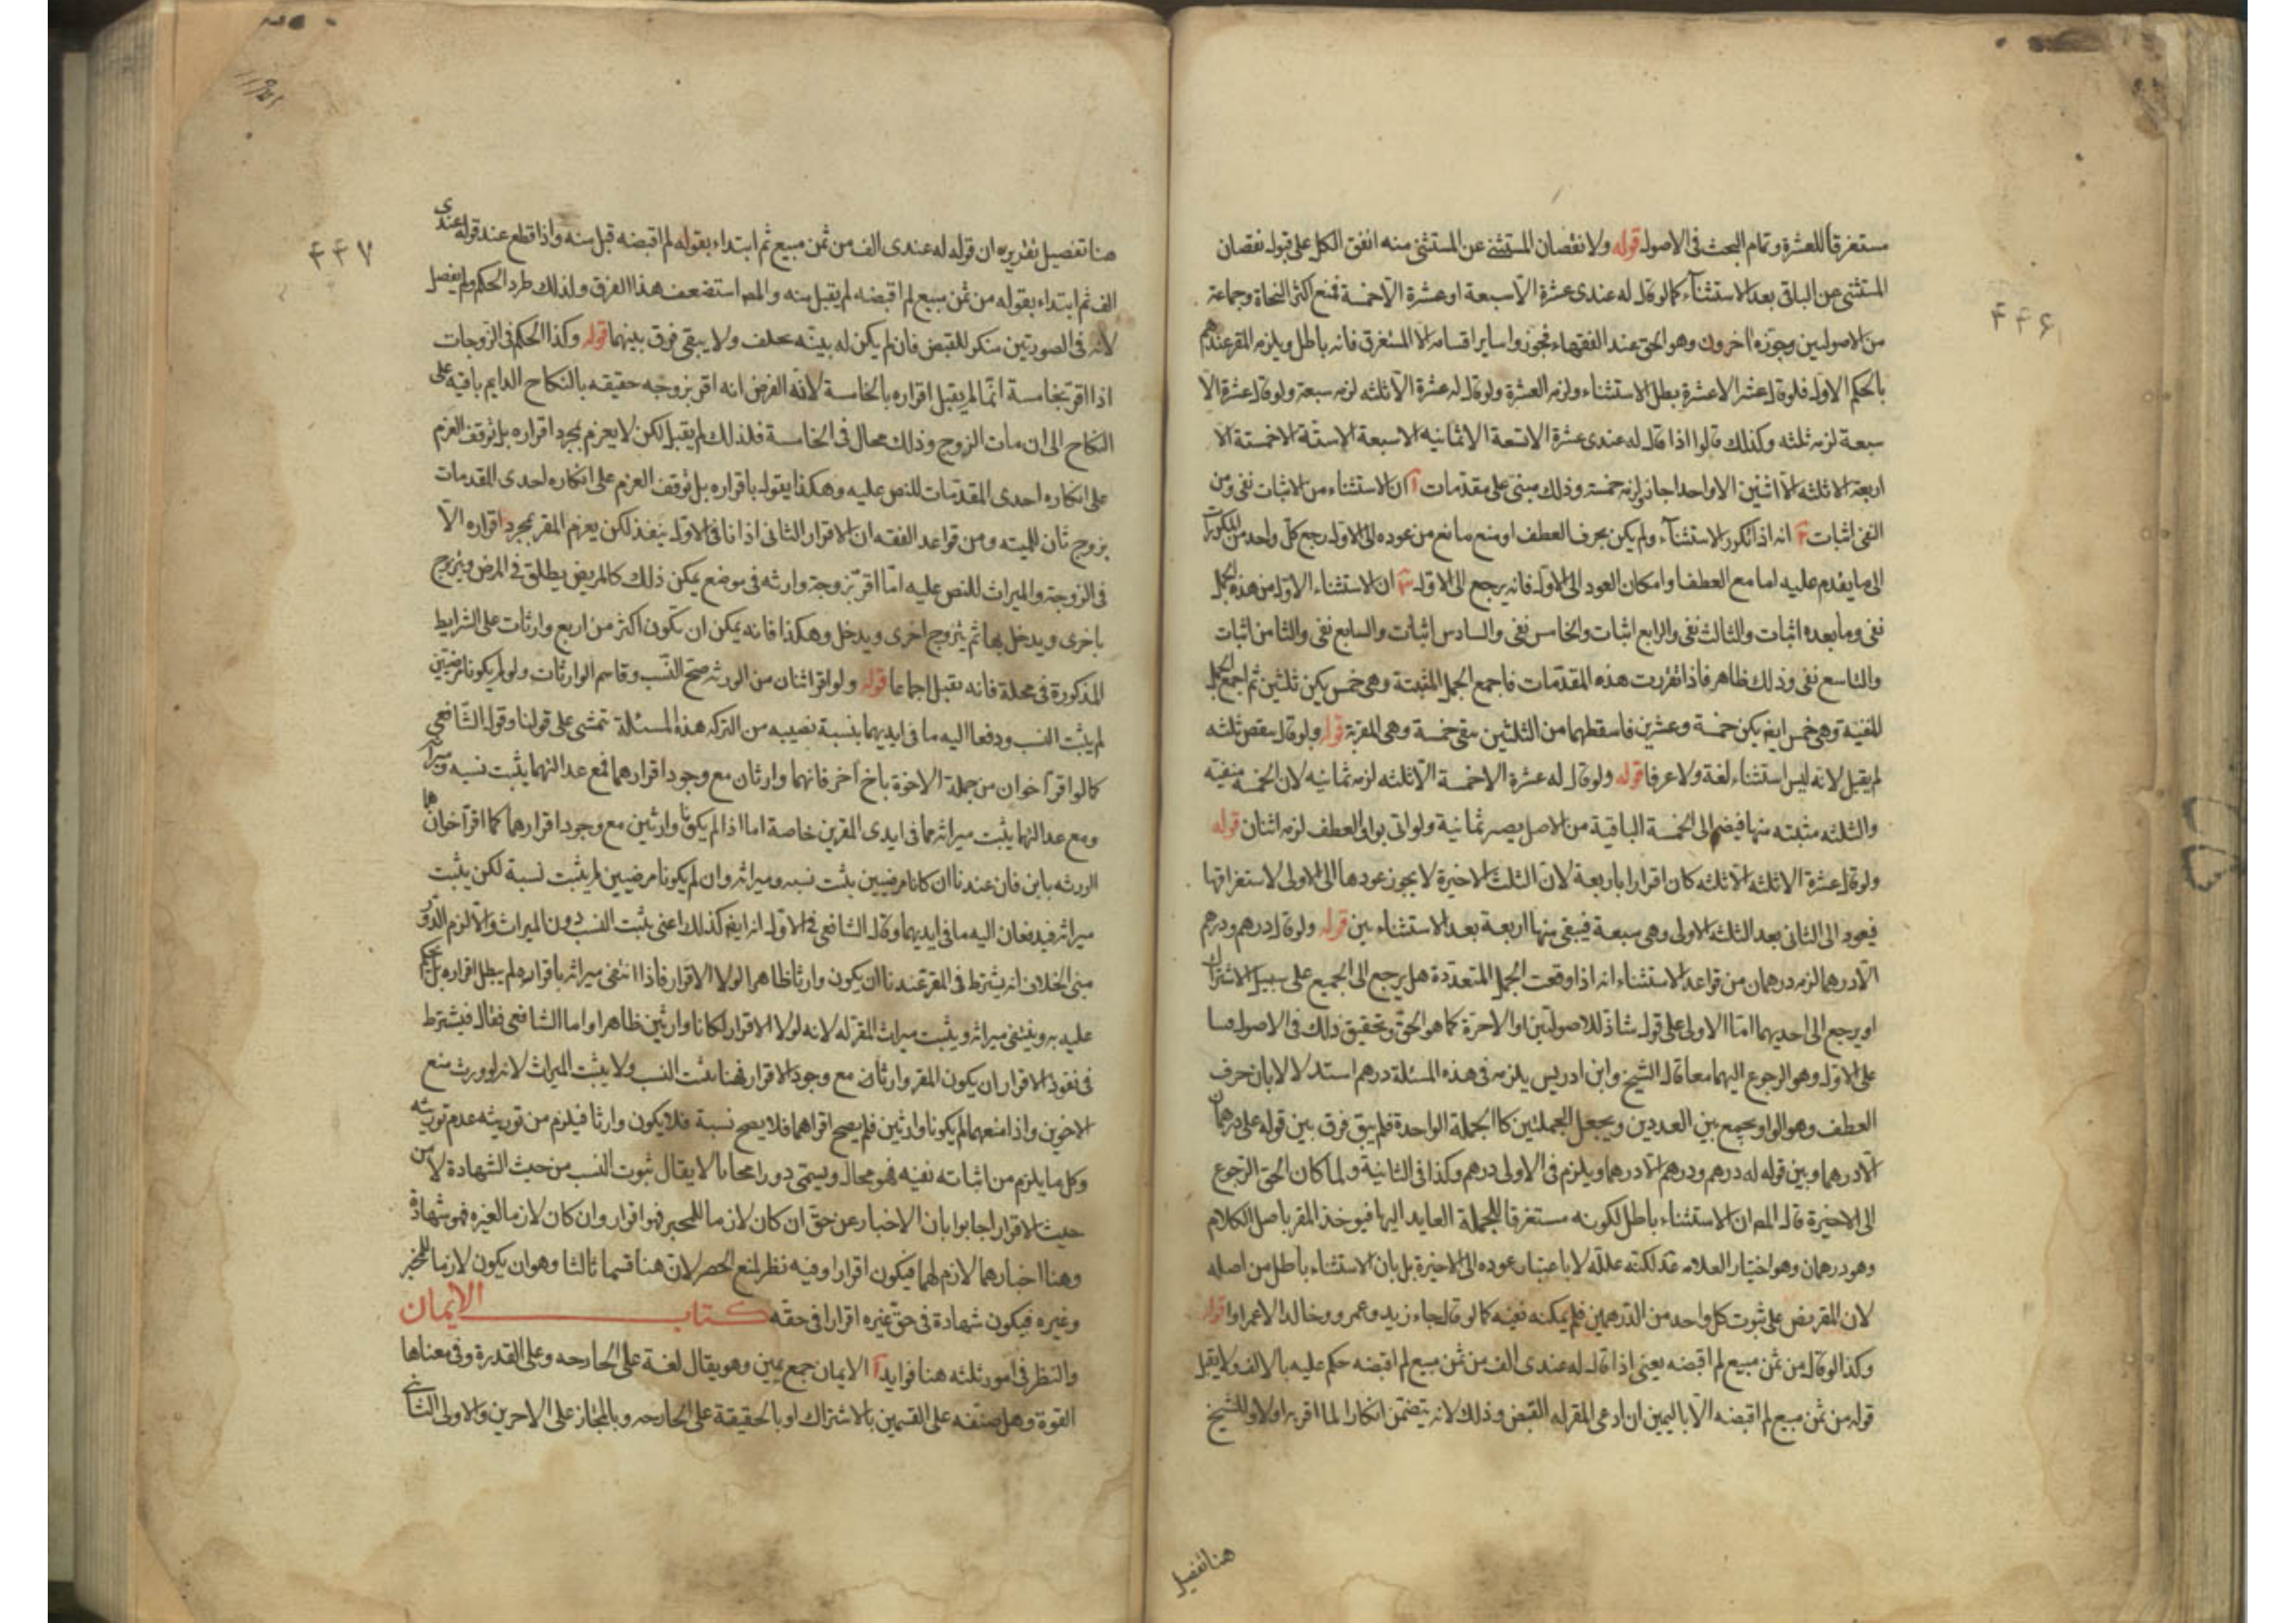 ۴۴۶
مستغرقا للعشرة وتمام البحث فى الاصول قوله ولا نقصان المستثنى عن المستثنى منه اتفق الكل على قبول نقصان
المستثنى عن الباقى بعد الاستثنآء كما لو قال له عندى عشرة الا سبعة او عشرة الا خمسة فمنع اكثر النحاة وجماعة
من الاصوليين وجوزه اخرون وهو الحق عند الفقهاء فجوزوا ساير اقسامه الا المستغرق فانه باطل ويلزم المقر عندهم
بالحكم الاول فلو قال عشرة الا عشرة بطل الاستثناء ولزمه العشرة ولو قال له عشرة الا ثلثه لزمه سبعة ولو قال عشرة الا
سبعة لزمه ثلثه وكذلك قالوا اذا قال له عندى عشرة الا تسعة الا ثمانيه الا سبعة الا ستة الا خمستة الا
اربعة الا ثلثه الا اثنين الا واحدا جاز ولزمه خمسة وذلك مبنى على مقدمات آ ان الاستثناء من الاثبات نفى ومن
النفى اثبات ٢ انه اذا تكرر الاستثنآء ولم يكن بحرف العطف او منع مانع من عوده الى الاول رجع كل واحد من المذكورات
الى ما يقدم عليه اما مع العطف وامكان العود الى الاول فانه يرجع الى الاول ٣ ان الاستثناء الاول من هذه الجمل
نفى وما بعده اثبات والثالث نفى والرابع اثبات والخامس نفى والسادس اثبات والسابع نفى والثامن اثبات
والتاسع نفى وذلك ظاهر فاذا تقررت هذه المقدمات فاجمع الجمل المثبتة وهى خمس يكن ثلثين ثم اجمع الجمل
المنفية وهى خمس ايضا يكن خمسة وعشرين فاسقطهما من الثلثين يبقى خمسة وهى المقربة قوله ولو قال ينقص ثلثه
لم يقبل لانه ليس استثناء لغة ولا عرفا قوله ولو قال له عشرة الا خمسة الا ثلثه لزمه ثمانيه لان الخمسة منفية
والثلثه مثبته منها فيضم الى الخمسة الباقية من الاصل يصير ثمانية ولو اتى بواو العطف لزمه اثنان قوله
ولو قال عشرة الا ثلثه الا ثلثه كان اقرارا باربعة لان الثلث الاخيرة لا يجوز عودها الى الاولى لاستغراقها
فيعود الى الثانى بعد الثلثه الاولى وهى سبعة فيبقى منها اربعة بعد الاستثناء ين قوله ولو قال درهم ودرهم
الا درهما لزمه درهمان من قواعد الاستثناء انه اذا وقعت الجمل المتعددة هل يرجع الى الجميع على سبيل الاشتراك
او يرجع الى احديهما اما الاولى على قول شاذ للاصوليين او الاخرة كما هو الحق وتحقيق ذلك فى الاصول
على الاول وهو الرجوع اليهما معا قال الشيخ وابن ادريس يلزمه فى هذه المسئلة درهم استدلالا بان حرف
العطف وهو الواو يجمع بين العددين ويجعل الجملتين كالجملة الواحدة فلم يبق فرق بين قوله على درهمان
الا درهما وبين قوله له درهم ودرهم الا درهما ويلزم فى الاولى درهم وكذا فى الثانية ولما كان الحق الرجوع
الى الاخيرة قال المص ان الاستثناء باطل لكونه مستغرقا للجملة العايد اليها فيوخذ المقر باصل الكلام
وهو درهمان وهو اختيار العلامه لكنه علله لا باعتبار عوده الى الاخيرة بل بان الاستثناء باطل من اصله
لان المقر نص على ثبوت كل واحد من الدرهمين فلم يمكنه نفيه كما لو قال جاء زيد وعمرو وخالد الا عمراوا قوله
وكذا لو قال من ثمن مبيع لم اقبضه يعنى اذا قال له عندى الف من ثمن مبيع لم اقبضه حكم عليه بالالف ولا يقبل
قوله من ثمن مبيع لم اقبضه الا باليمين ان ادعى المقر له القبض وذلك لانه يتضمن انكارا لما اقر به اولا وللشيخ
هنا تفصيل
۴۴۷
هنا تفصيل تقريره ان قوله له عندى الف من ثمن مبيع ثم ابتداء بقوله لم اقبضه قبل منه واذا قطع عند قوله عندى
الف ثم ابتداء بقوله من ثمن مبيع لم اقبضه لم يقبل منه والمص استضعف هذا الفرق ولذلك طرد الحكم ولم يفصل
لانه فى الصورتين منكر للقبض فان لم يكن له بينه حلف ولا يبقى فرق بينهما قوله وكذا الحكم فى الزوجات
اذا اقر بخامسة انما لم يقبل اقراره بالخامسة لانه الفرض انه اقر بزوجه حقيقه بالنكاح الدايم باقية على
النكاح الى ان مات الزوج وذلك محال فى الخامسة فلذلك لم يقبل لكن لا يغرم بمجرد اقراره بل توقف الغرم
على انكاره احدى المقدمات للنص عليه وهكذا يقول باقراره بل توقف الغرم على انكاره احدى المقدمات
بزوج ثان للميته ومن قواعد الفقه ان الاقرار الثانى اذا نافى الاول ينفذ لكن يغرم المقر بمجرد اقراره الا
فى الزوجة والميراث للنص عليه اما اقر بزوجة وارثه فى موضع يمكن ذلك كالمريض يطلق فى المرض ويتزوج
باخرى ويدخل بها ثم يتزوج اخرى ويدخل وهكذا فانه يمكن ان تكون اكثر من اربع وارثات على الشرايط
المذكورة فى محله فانه يقبل اجماعا قوله ولو اقر اثنان من الورثه صح النسب وقاسم الوارثات ولو لم يكونا مرضيين
لم يثبت النسب ودفعا اليه ما فى ايديهما بنسبة نصيبه من التركه هذه المسئلة تتمشى على قولنا وقول الشافعى
كما لو اقر اخوان من جملة الاخوة باخ اخر فانهما وارثان مع وجود اقرارهما فمع عدالتهما يثبت نسبه وميراثه
ومع عدالتهما يثبت ميراثه مما فى ايدى المقرين خاصة اما اذا لم يكونا وارثين مع وجود اقرارهما كما اقر اخوان هما
الورثه بابن فان عندنا ان كانا مرضيين يثبت نسبه وميراثه وان لم يكونا مرضيين لم يثبت نسبة لكن يثبت
ميراثه فيدفعان اليه ما فى ايديهما وقال الشافعى فى الاول انه ايضا كذلك اعنى يثبت النسب دون الميراث والا لزم الدور
مبنى الخلاف انه يشترط فى المقر عندنا ان يكون وارثا ظاهرا لولا الاقرار فاذا انتفى ميراثه باقراره لم يبطل اقراره بل يحكم
عليه به وينتفى ميراثه ويثبت ميراث المقر له لانه لولا الاقرار لكانا وارثين ظاهرا واما الشافعى فقال فيشترط
فى نفوذ الاقرار ان يكون المقر وارثا مع وجود الاقرار فهنا يثبت النسب ولا يثبت الميراث لانه لو ورث منع
الاخوين واذا منعهما لم يكونا وارثين فلم يصح اقراهما فلا يصح نسبة فلا يكون وارثا فيلزم من توريثه عدم توريثه
وكل ما يلزم من اثباته نفيه فهو محال ويسمى دورا محالا لا يقال ثبوت النسب من حيث الشهادة لا من
حيث الاقرار اجابوا بان الاخبار عن حق ان كان لازما للمخبر فهو اقرار وان كان لازما لغيره فهو شهادة
وهنا اخبارهما لازم لهما فيكون اقرارا وفيه نظر لمنع الحصر لان هنا قسما ثالثا وهو ان يكون لازما للمخبر
وغيره فيكون شهادة فى حق غيره اقرارا فى حقه كتاب الايمان
والنظر فى امور ثلثه هنا فوايد آ الايمان جمع يمين وهو يقال لغة على الجارحه وعلى القدرة وفى معناها
القوة وهل صدقه على القسمين بالاشتراك او بالحقيقة على الجارحه وبالمجاز على الاخرين والاولى الثانى